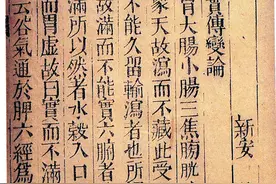 新安
實傳變論
胃大腸小腸三焦膀胱
象天故瀉而不藏此受
不能久留輸瀉者也所
故滿而不能實六腑者
滿所以然者水穀入口
而胃虛故曰實而不滿
云谷氣通於脾六經爲